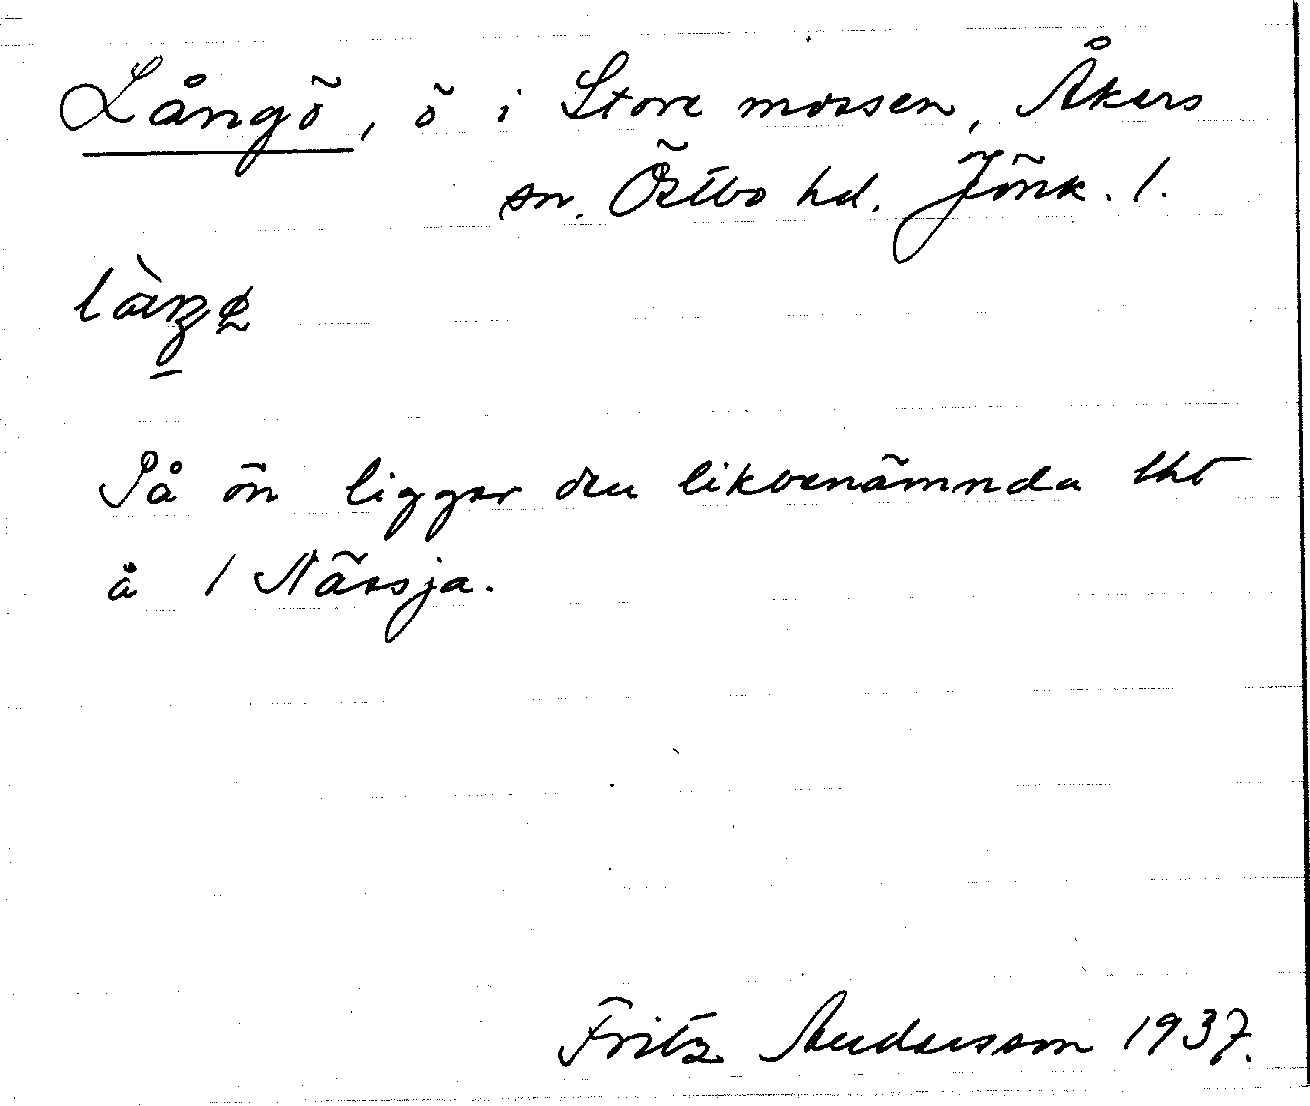 Långö, ö i Store mossen, Åkers
sn. Östbo hd. Jönk. l.
På ön liggar den likbenämnda lht
å 1 Nässja.
Fritz Andersson 1937.